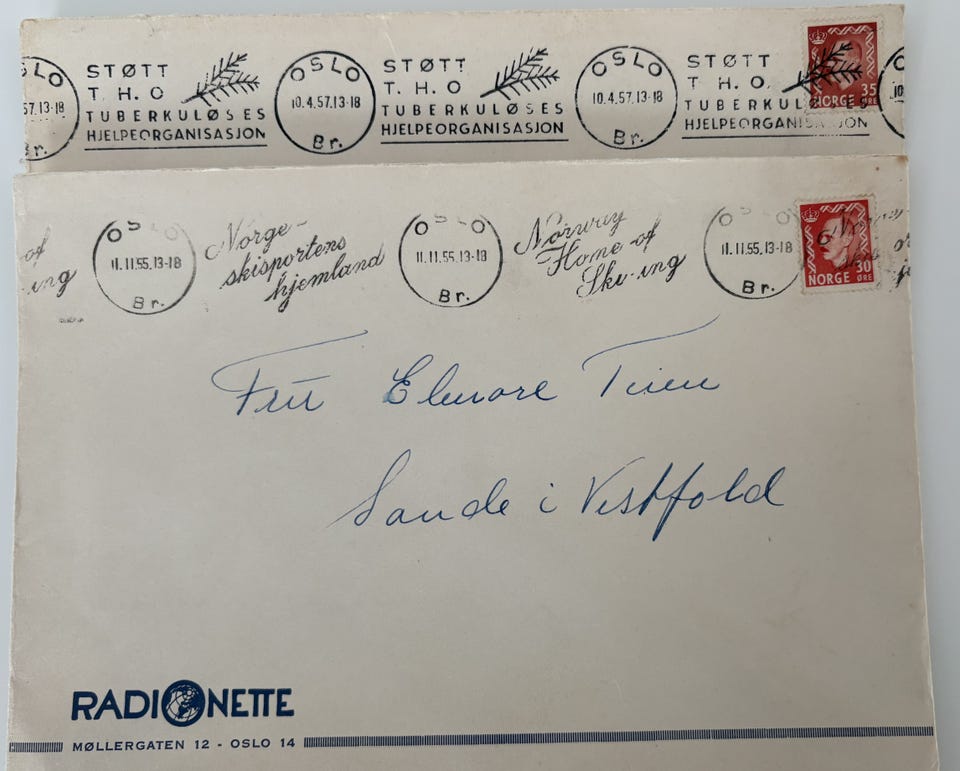 OSLO
57.13-18
Br.
STØTT
T. H. O
TUBERKULØSES
HJELPEORGANISASJON
OSLO
10.4.57.13-18
Br.
STØTT
T. H. O
TUBERKULØSES
HJELPEORGANISASJON
OSLO
10.4.57.13-18
Br.
STØTT
T. H. O.
TUBERKULØSES
HJELPEORGANISASJON
35
NORGE ØRE
O
10
of
ing
OSLO
11.11.55.13-18
Br.
Norge-
skisportens
hjemland
OSLO
11.11.55.13-18
Br.
Norway
Home of
Ski-ing
OSLO
11.11.55.13-18
Br.
30
NORGE ØRE
Fru Elenore Teien
Sande i Vestfold
RADIONETTE
MØLLERGATEN 12 - OSLO 14